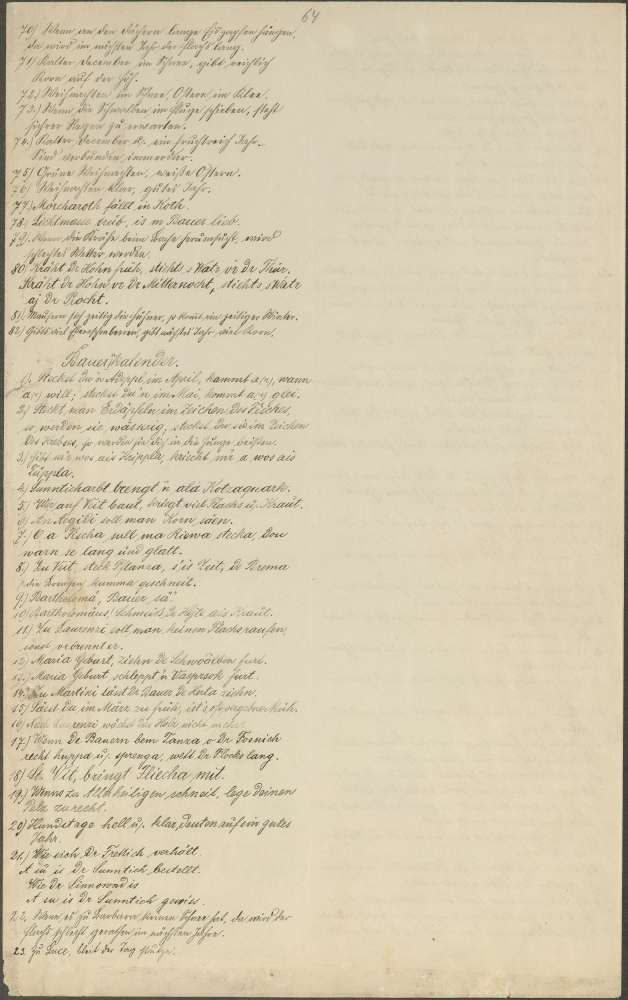 64
70) Wenn an den Dächern lange Eiszapfen hängen,
da wird im nächsten Jahr der Flachs lang.
71) Kalter December im Schnee, gibt reichlich
Korn auf der Höh.
72.) Weihnachten im Schnee, Ostern im Klee.
73.) Wenn die Schwalben im Fluge schieben, steht
sichrer Regen zu erwarten.
74.) Kalter December u. ein fruchtreich Jahr,
Sind verbunden immerdar.
75) Grüne Weihnachten, weiße Ostern.
76) Weihnachten klar, gutes Jahr.
77) Märcharoth fällt in Koth.
78. Lichtmesse trüb, is m Bauer lieb.
79. Wenn die Krähe beim Hause herumsucht, wird
schlechtes Wetter werden.
80. Kräht De Hohn früh, stichts s Watr ver De Thür.
Kräht de Hohn ve De Mitternocht, stichts s Watr
aj De Rocht.
81. Mausern sich zeitig die Hühner, so kommt ein zeitiger Winter.
82.) Gibts viel, gibt nächstes Jahr viel Korn.
Bauernkalender.
1). Steckst Du'n Adäppl im April, kommt a, wann
a will; steckst Du'n im Mai, kommt a glei.
2.) Steckt man Erdäpfeln im Zeichen Des Fisches,
so werden sie wässrig, steckst Du sie im Zeichen
Des Krebses, so werden sie Dich in die Zunge beißen.
3.) Gibt mr wos ais Krippla, kriecht mr a wos ais
Tüppla.
4.) Sunntichärbt brengt ú ala Kotzaquark.
5.) Wer auf Veit baut, kriegt viel Flachs u. Kraut.
6) An Aegidi soll man Korn säen.
7.) O a Recha, sull ma Riewa stecka, Dou
warn se lang und glatt.
8.) Zu Veit, steck Planza, s'is Zeit, De Brema
(die Bremsen) kumma geschneit.
9) Barthelemä, Bauer, sä.
10) Bartholomäus, schmeißt De Hejte ais Kraut.
11) Zu Laurenzi soll man keinen Flachs raufen,
sonst verbrennt er.
12) Maria Geburt, ziehn De Schwoälben furt.
13.) Maria Geburt schleppt 'n Vasprsok furt.
14. Zu Martini lässt Dr Bauer De Karla ziehn.
15) Säest Du im März zu früh, ist's oft vergebne Müh.
16) Nach Laurenzi wächst das Holz nicht mehr.
17.) Wenn De Bauern bem Tanza, o Dr Fosnich
recht huppa u. sprenga, wett Dr Flocks lang.
18) St. Vit, bringt Fliecha mit.
19) Wenns zu Allerheiligen schneit, lege Deinen
Pelz zurecht.
20) Hundstage hell u. klar, deuten auf ein gutes
Jahr.
21.) Wie sich Dr Freitich verhölt,
A sú is Dr Sunntich bestellt.
Wie Dr Sinnowad is
A su is Dr Sunntich gewiss.
22. Wenn es zu Barbara keinen Schnee hat, da wird der
Flachs schlecht gerathen im nächsten Jahre.
23. Zu Luce, bleit der Tag stutze.